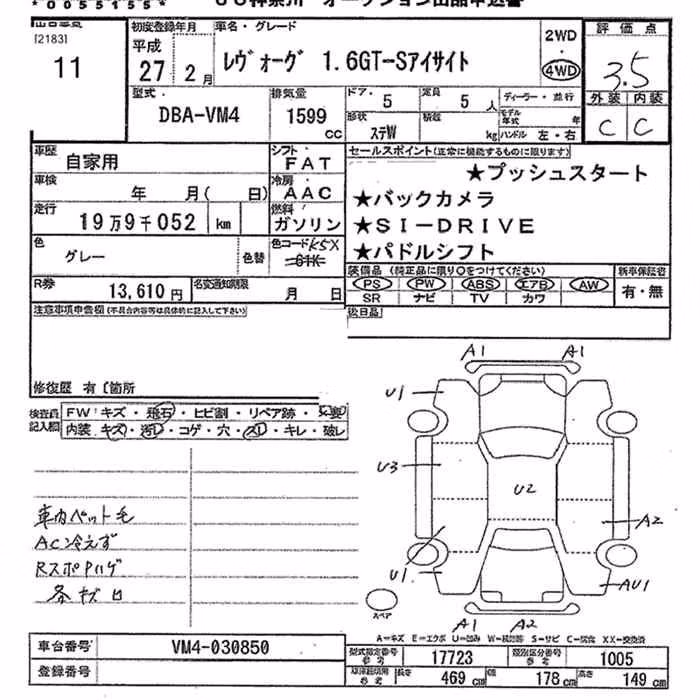 *0055155*
[2183]
11
初度登録年月
平成
27年2月
車名・グレード
レヴォーグ 1.6GT-Sアイサイト
2WD
・
4WD
評価点
3.5
外装 内装
C C
型式
DBA-VM4
排気量
1599
cc
ドア・
5
定員
5人
形状
ステW
積載
kg
ディーラー・並行
モデル年式
年
ハンドル 左・右
車歴
自家用
シフト
FAT
車検
年 月( 日)
冷房
AAC
走行
19万9千052 km
燃料
ガソリン
色
グレー
色替
色コード K5X
61K
R券
13,610円
名変通知期限
月 日
セールスポイント(正常に機能するものに限ります)
★プッシュスタート
★バックカメラ
★SI-DRIVE
★パドルシフト
装備品 (純正品に限り○をつけてください)
PS PW ABS エアB AW
SR ナビ TV カワ
新車保証書
有・無
後日品
注意事項申告欄(不具合内容等は具体的に記入して下さい)
修復歴 有〔箇所
検査員記入欄
FW キズ・飛石・ヒビ割・リペア跡・交要
内装 キズ・汚レ・コゲ・穴・スレ・キレ・破レ
車内ペット毛
AC冷えず
RスポPハゲ
各キズ凹
A1 A1
U1
U3
U2
A2
U1
AU1
A1 A2
スペア
A=キズ E=エクボ U=凹み W=補修跡 S=サビ C=腐食 XX=交換済
車台番号
VM4-030850
登録番号
型式指定番号
参考
17723
類別区分番号
参考
1005
長さ
469 cm
幅
178 cm
高さ
149 cm